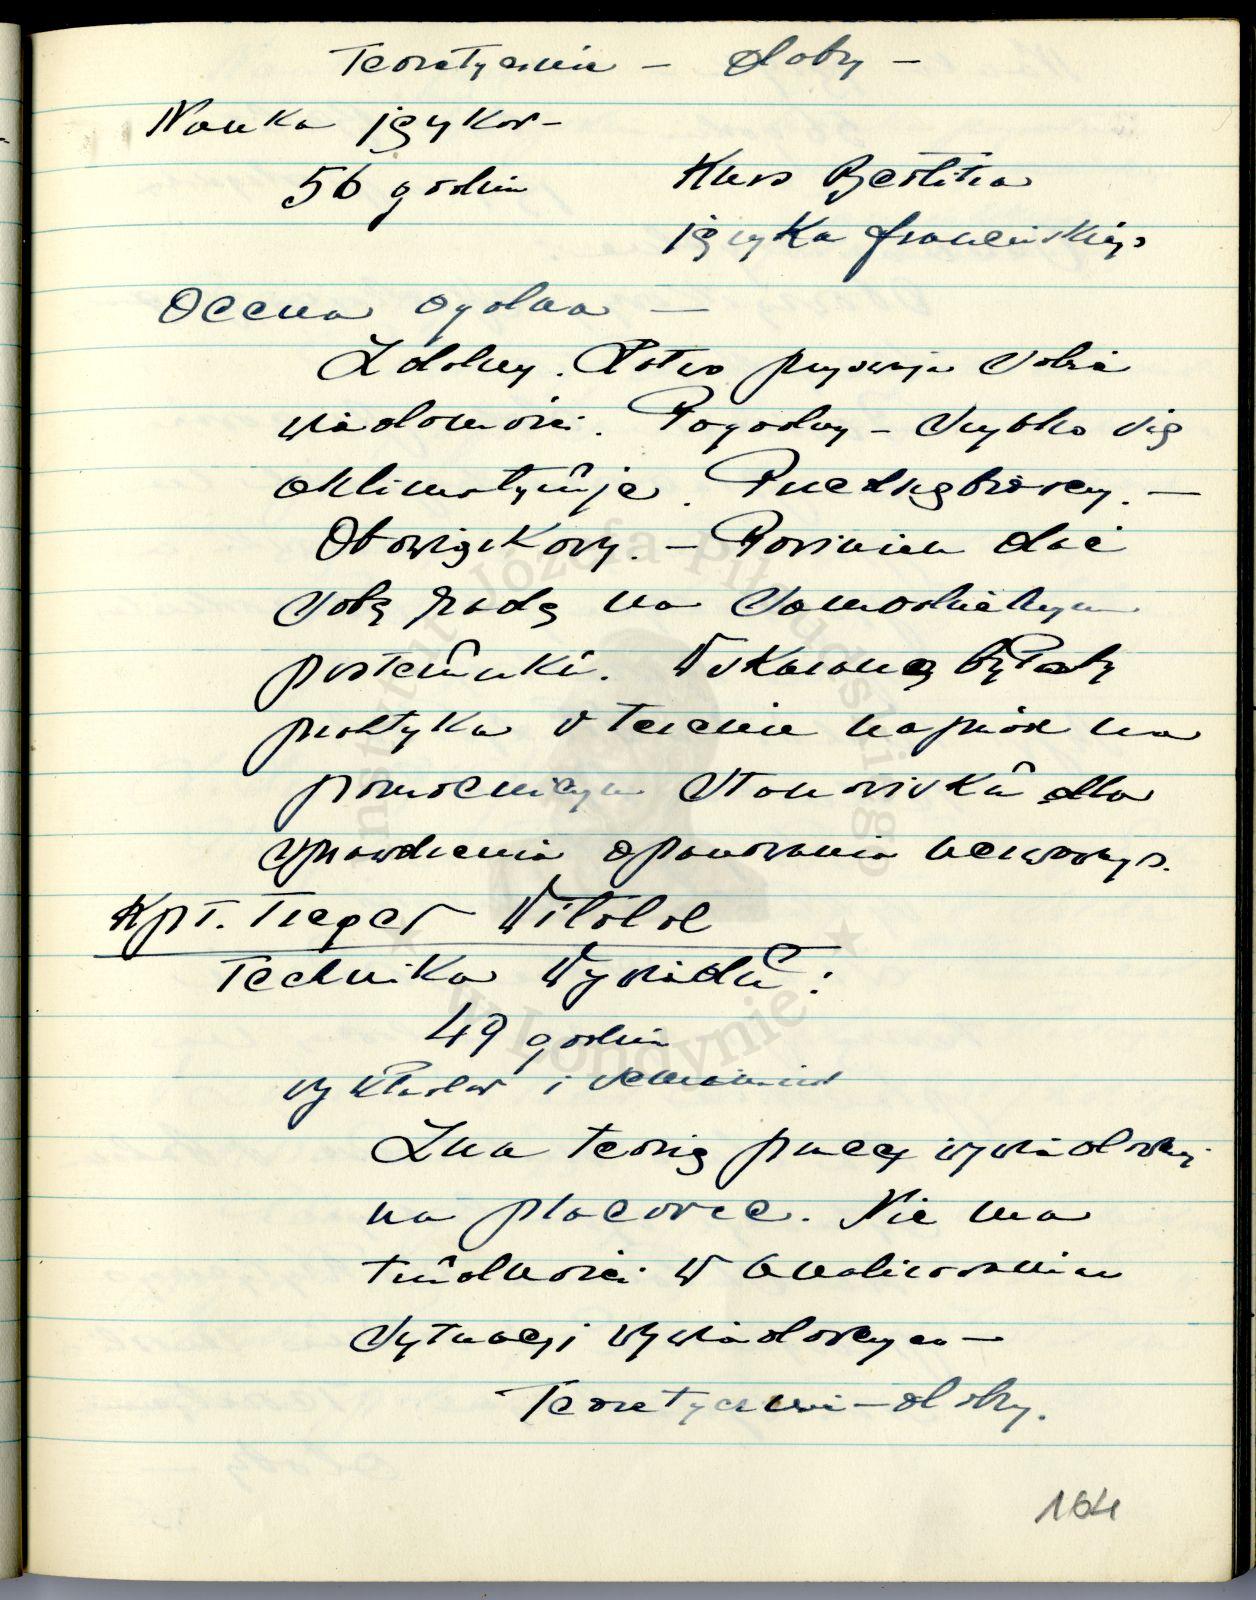 Teoretycznie – dobry –
Nauka języków –
56 godzin Kurs Berlitza
języka francuskiego
Ocena ogólna –
Zdolny. Łatwo przyswaja sobie
wiadomości. Pogodny – szybko się
aklimatyzuje. Przedsiębiorczy. –
Obowiązkowy. – Powinien dać
sobie radę na samodzielnym
posterunku. Wskazaną byłaby
praktyka w terenie naprzód na
pomocniczym stanowisku dla
sprawdzenia opanowania nerwowego.
Kpt. Treger Witold
Technika Wywiadu:
49 godzin
wykładów i seminariów
Zna teorię pracy wywiadowczej
na placówce. Nie ma
trudności w analizowaniu
sytuacji wywiadowczych –
Teoretycznie – dobry.
164
Instytut Józefa Piłsudskiego
w Londynie